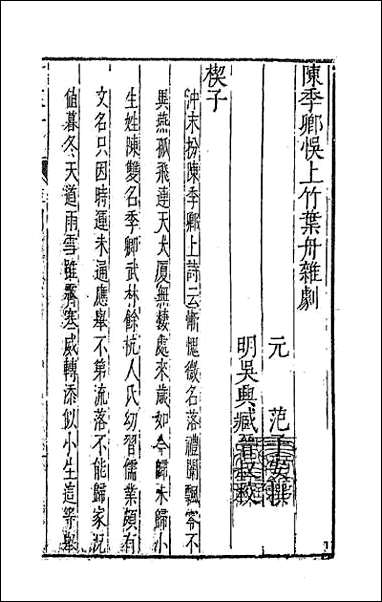 陳季卿悞上竹葉舟雜劇
元　范子安撰
明吳興臧晉叔校
楔子
沖末扮陳季卿上詩云慚愧微名落禮闈飄零不
異燕孤飛連天大廈無棲處來歲如今歸未歸小
生姓陳雙名季卿武林餘杭人氏幼習儒業頗有
文名只因時運未通應舉不第流落不能歸家況
值暮冬天道雨雪雖霽寒威轉添似小生這等舉